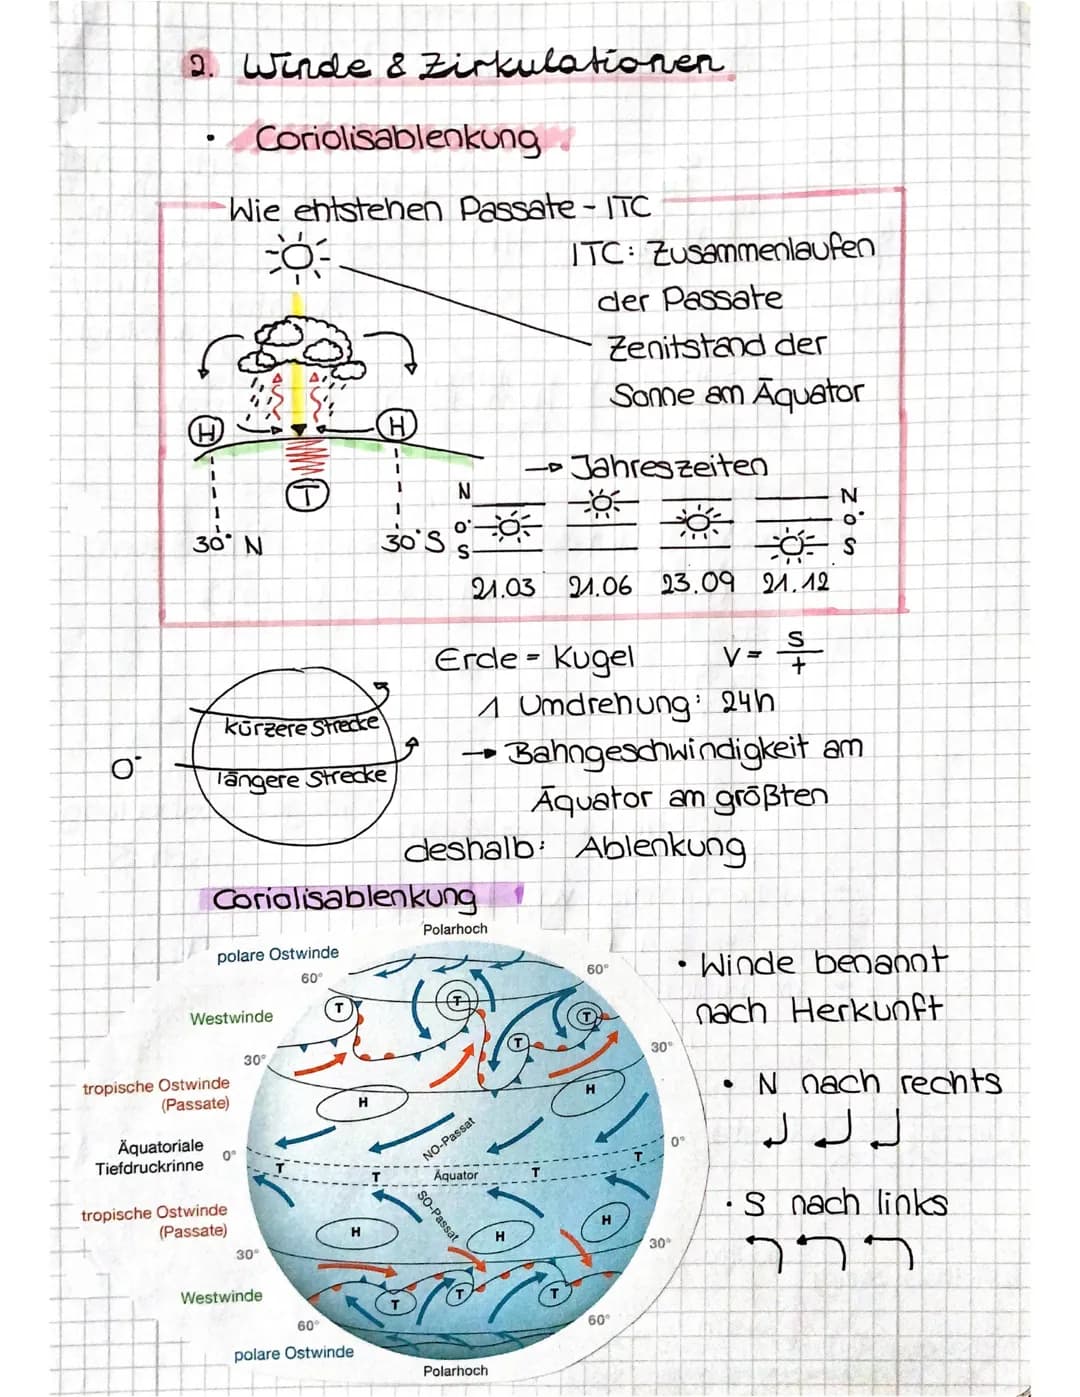 2. Winde & Zirkulationen
• Coriolisablenkung
Wie entstehen Passate - ITC
ITC: Zusammenlaufen
der Passate
Zenitstand der
Sonne am Äquator
H
H
T
30° N
30°S
→ Jahreszeiten
N
0°
S
N
0°
S
21.03 21.06 23.09 21.12
Erde = Kugel v = s/t
1 Umdrehung: 24h
→ Bahngeschwindigkeit am
Äquator am größten
deshalb: Ablenkung
kürzere Strecke
0°
längere Strecke
Coriolisablenkung
Polarhoch
polare Ostwinde
60°
60°
T
T
T
T
Westwinde
30°
30°
tropische Ostwinde
(Passate)
H
H
NO-Passat
Äquatoriale
Tiefdruckrinne
0°
0°
T
T
Äquator
T
T
SO-Passat
tropische Ostwinde
(Passate)
H
H
H
30°
30°
Westwinde
T
T
T
60°
60°
polare Ostwinde
Polarhoch
• Winde benannt
nach Herkunft
• N nach rechts
• S nach links